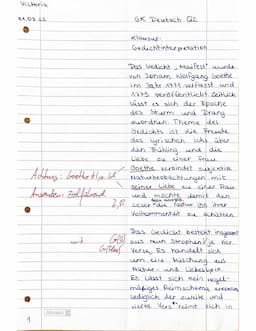 Victoria
01.03.22
GK Deutsch Q2
Klausur:
Gedichtinterpretation
Das Gedicht "Maifest" wurde
von Johann Wolfgang Goethe
im Jahr 1771 verfasst und
1775 veröffentlicht. Zeitlich
lässt es sich der Epoche
des Sturm und Drang
zuordnen. Thema des
Gedichts ist die Freude
des lyrischen Ichs über
den Frühling und die
Liebe zu einer Frau.
Goethe verbindet subjektive
Naturbeobachtungen mit
seiner Liebe zu einer Frau
und möchte damit den
Leser die Natur in ihrer
Vollkommenheit zu schätzen
Achtung: Goethe
Das Gedicht besteht insgesamt
aus neun Strophen je vier
Verse. Es handelt sich
um eine Mischung aus
Natur- und Liebeslyrik.
Es lässt sich kein regel-
mäßiges Reimschema erkennen,
lediglich der zweite und
vierte Vers reimt sich in
1